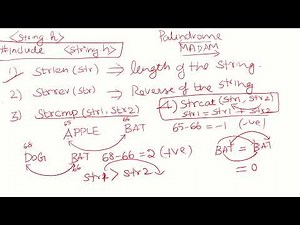 <string h>
Palindrome
#include <string h>
MADAM
1) Strlen(str) ⇒ length of the string.
2) Strrev(str) ⇒ Reverse of the string
3) Strcmp(str1, str2)
4) Strcat(str1, str2)
str1 = str1
65 66
APPLE BAT
65-66 = -1 (-ve)
68
DOG BAT 68-66 = 2 (+ve)
66
BAT = BAT
= 0
str1 > str2